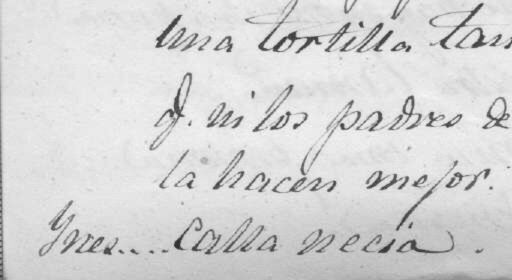 una tortilla tan
q. ni los padres de
la hacen mejor.
Ynes.... Calla necia.